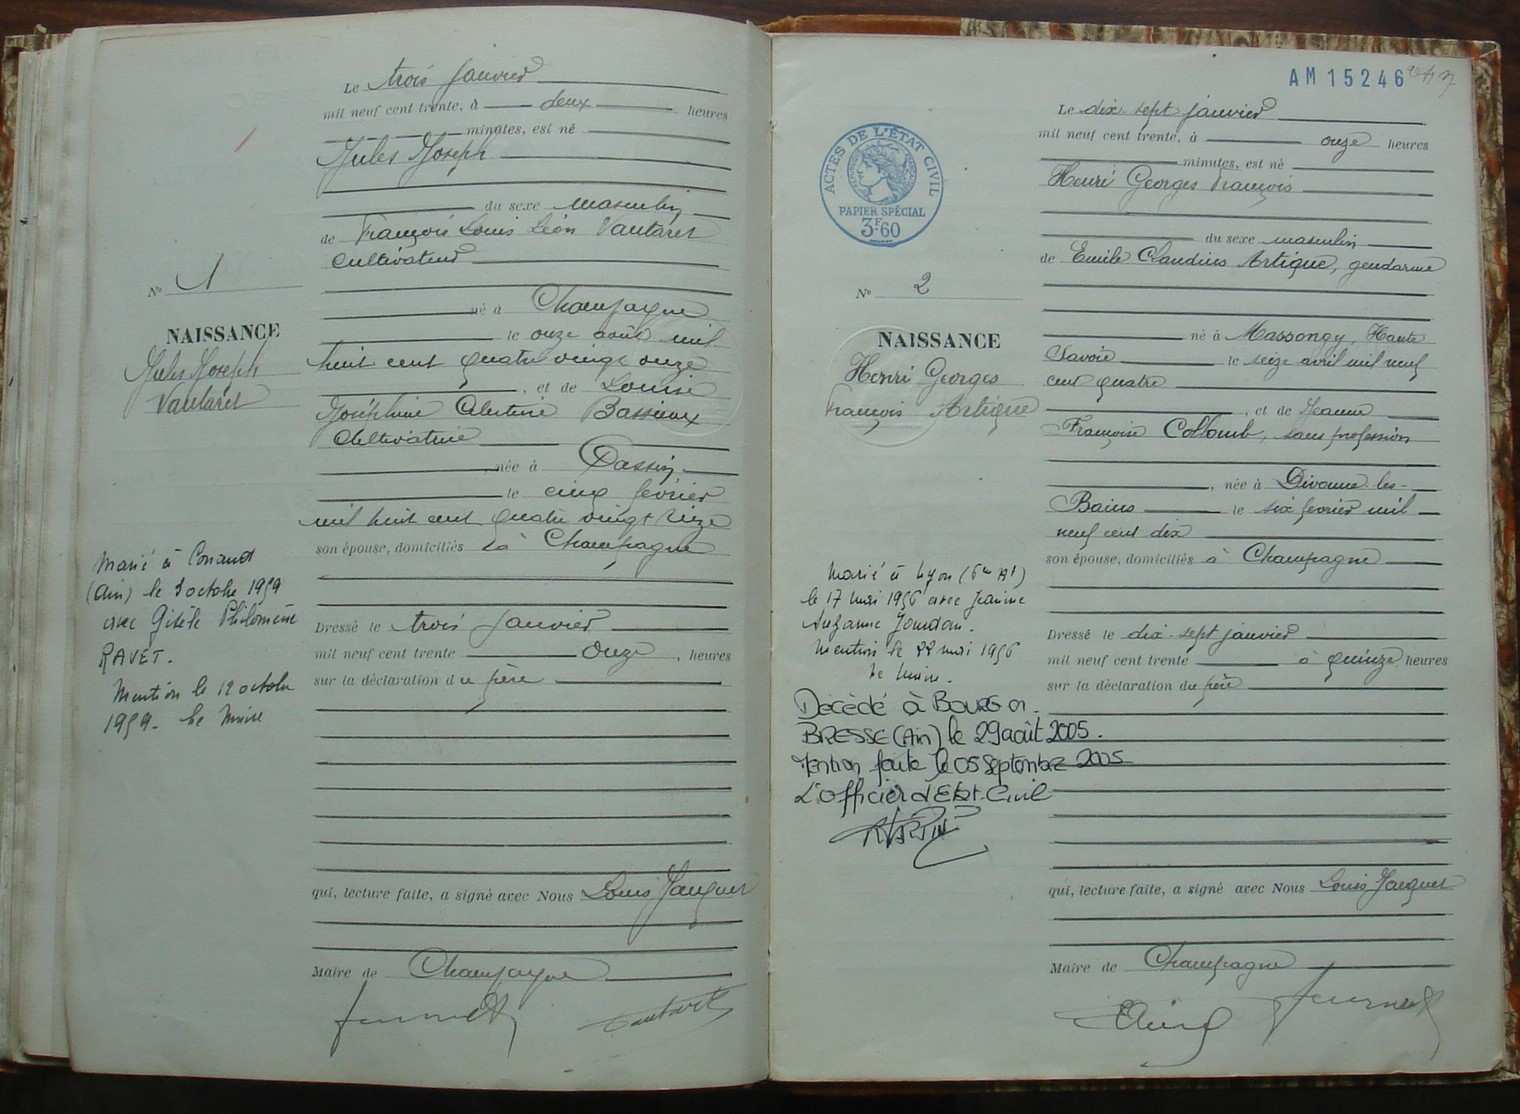 Le trois Janvier
mil neuf cent trente, à deux heures
minutes, est né
Jules Joseph
du sexe masculin
de François Louis Léon Vautaret
Cultivateur
né à Champagne
le onze août mil
huit cent quatre vingt onze
, et de Louise
Joséphine Albertine Bassieux
Cultivatrice
, née à Passin
le cinq février
mil huit cent quatre vingt
son épouse, domiciliés à Champagne
Dressé le trois Janvier
mil neuf cent trente onze, heures
sur la déclaration du père
qui, lecture faite, a signé avec Nous Louis
Maire de Champagne
No 1
NAISSANCE
Jules Joseph
Vautaret
Marié à Conand
(Ain) le 3 octobre 1959
avec Gisèle Philomène
RAVET.
Mention le 12 octobre
1959. Le Maire
AM 15246
Le dix sept janvier
mil neuf cent trente, à onze heures
minutes, est né
Henri Georges François
du sexe masculin
de Emile Claudius Artique, gendarme
né à Massongy, Haute
Savoie le seize avril mil neuf
cent quatre
, et de Jeanne
Françoise Collomb, sans profession
, née à Divonne les-
Bains le six février mil
neuf cent dix
son épouse, domiciliés à Champagne
Dressé le dix-sept janvier
mil neuf cent trente à quinze heures
sur la déclaration du père
qui, lecture faite, a signé avec Nous Louis
Maire de Champagne
ACTES DE L'ÉTAT CIVIL
PAPIER SPÉCIAL
3F.60
No 2
NAISSANCE
Henri Georges
François Artique
Marié à Lyon (6me At)
le 17 mai 1956 avec Jeanine
Suzanne Jourdan.
Mention le 22 mai 1956
Le Maire.
Décédé à BOURG en
BRESSE (Ain) le 29 août 2005.
Mention faite le 05 Septembre 2005
L'Officier d'Etat-Civil